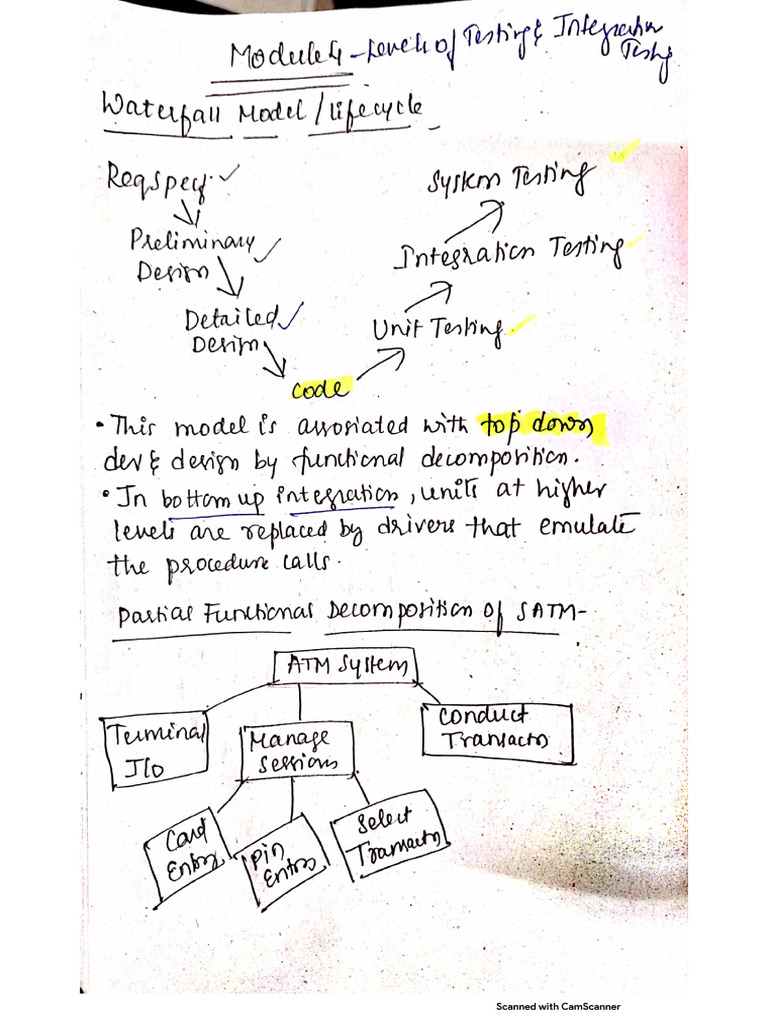 Module 4 - Levels of Testing & Integration
Testing
Waterfall Model / Lifecycle
Reqspecf.
System Testing
Preliminary
Design
Integration Testing
Detailed
Design
Unit Testing
Code
• This model is associated with top down
dev & design by functional decomposition.
• In bottom up integration, units at higher
levels are replaced by drivers that emulate
the procedure calls.
Partial Functional Decomposition of SATM-
ATM System
Terminal
I/O
Manage
Sessions
Conduct
Transactn
Card
Entry
Pin
Entry
Select
Transactn
Scanned with CamScanner